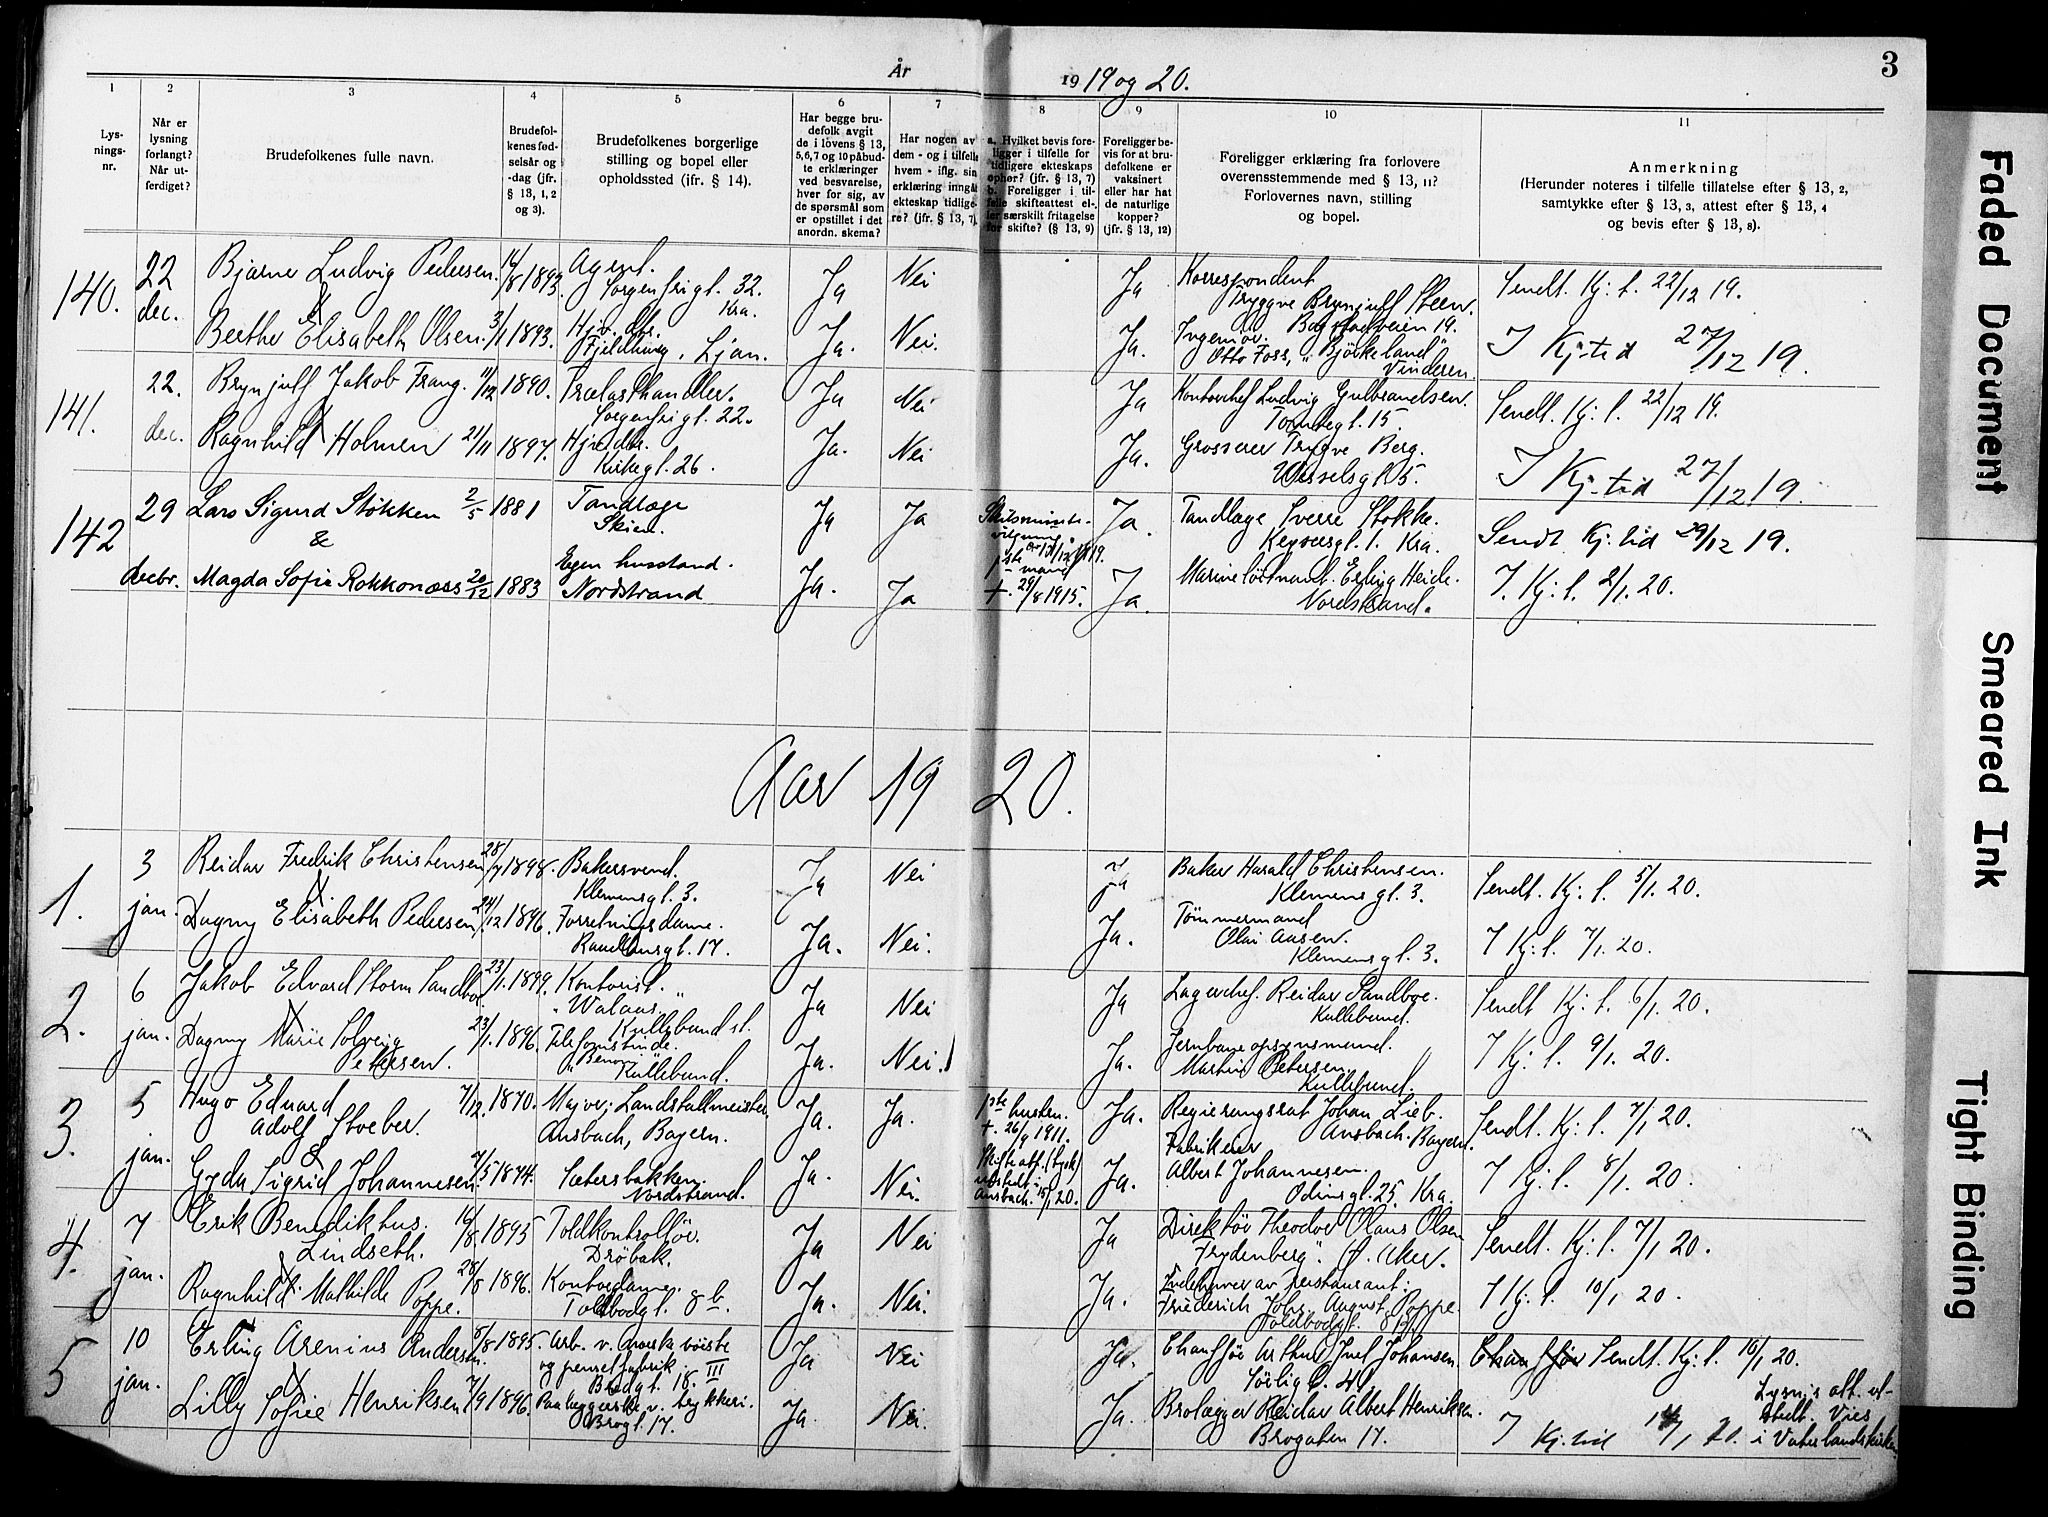 År 19 19 og 20. 3
1 2 3 4 5 6 7 8 9 10 11
Lys-
nings-
nr.
Når er
lysning
forlangt?
Når ut-
ferdiget?
Brudefolkenes fulle navn.
Brudefol-
kenes fød-
selsår og
-dag (jfr.
§ 13, 1, 2
og 3).
Brudefolkenes borgerlige
stilling og bopel eller
opholdssted (jfr. § 14).
Har begge bru-
defolk avgit
de i lovens § 13,
5, 6, 7 og 10 påbud-
te erklæringer
ved besvarelse,
hver for sig, av
de spørsmål som
er opstillet i det
anordn. skema?
Har nogen av
dem - og i tilfelle
hvem - iflg. sin
erklæring inngåt
ekteskap tidlige-
re? (jfr. § 13, 7).
a. Hvilket bevis fore-
ligger i tilfelle for
tidligere ekteskaps
ophør? (jfr. § 13, 7)
b. Foreligger i til-
felle skifteattest el-
ler særskilt fritagelse
for skifte? (§ 13, 9)
Foreligger be-
vis for at bru-
defolkene er
vaksinert
eller har hat
de naturlige
kopper?
(jfr. § 13, 12)
Foreligger erklæring fra forlovere
overensstemmende med § 13, 11?
Forlovernes navn, stilling
og bopel.
Anmerkning
(Herunder noteres i tilfelle tillatelse efter § 13, 2,
samtykke efter § 13, 3, attest efter § 13, 4
og bevis efter § 13, 8).
140. 22 dec. Bjarne Ludvig Pedersen. 14/8 1893. Agent. Sorgenfrigt. 32. Kra. Ja Nei Ja Korrespondent Tryggve Brynjulf Steen. Bogstadveien 19. Sendt. Kj: t. 22/12 19.
&
Berthe Elisabeth Olsen. 3/1 1893. Hjv. dtr. Fjeldhaug, Ljan. Ja. Nei. Ja. Ingeniør Otto Foss, "Björkeland" Vinderen. I Kj-tid 27/12 19.
141. 22. dec. Brynjulf Jakob Frang. 11/12 1890. Trælasthandler. Sorgenfrigt. 22. Ja Nei Ja Kontorchef Ludvig Gulbrandsen. Tomtegt. 15. Sendt. Kj: t. 22/12 19.
&
Ragnhild Holmen 21/11 1897. Hjv. dtr. Kirkegt. 26. Ja. Nei Ja. Grosserer Trygve Berg. Wesselsgt 5. I Kj-tid 27/12 19.
142 29 decbr. Lars Sigurd Støkken 2/5 1881 Tandlæge Skien. Ja Ja Ja. Tandlæge Sverre Stokke. Keysersgt. 1. Kra. Sendt Kj. tid 29/12 19.
&
Magda Sofie Rokkonæss 20/12 1883 Egen husstand. Nordstrand Ja. Ja 1ste mand + 29/8 1915. Ja. Marineløitnant Erling Heide. Nordstrand. I. Kj: t. 2/1. 20.
Aar 19 20.
1. 3 jan. Reidar Fredrik Christensen 28/7 1898. Bakersvend. Klemensgt. 3. Ja Nei Ja Baker Harald Christensen. Klemensgt. 3. Sendt. Kj: t. 5/1. 20.
&
Dagny Elisabeth Pedersen 24/12 1896. Forretningsdame. Ja. Nei. Ja. Tömmermand Olai Aasen. Klemensgt. 3. I Kj: t. 7/1. 20.
2. 6 jan. Jakob Edvard Storm Sandboe 23/1. 1899. Kontorist. "Walaas" Kullebund st. Ja Nei Ja Lagerchef Reidar Sandboe. Kullebund. Sendt Kj: t. 6/1. 20.
&
Dagny Marie Solveig Petersen. 23/1. 1896. Telefonistinde. Kullebund. Ja. Nei. Ja. Jernbaneopsynsmand. Martin Petersen. Kullebund. I Kj: t. 9/1. 20.
3. 5 jan. Hugo Eduard Adolf Stoeber. 7/12. 1870. Major, Landstallmeister Ansbach, Bayern. Ja. Ja. 1ste hustru. + 26/9 1911. Ja. Regierungsrat Johan Lieb. Ansbach. Bayern. Sendt. Kj: t. 7/1 20.
&
Gyda Sigrid Johannesen 7/5 1874. Sætersbakken. Nordstrand. Ja. Nei. Skifteatt. (tysk) utstedt i Ansbach. 15/1 20. Ja. Fabrikeier Albert Johannesen. Odinsgt. 25. Kra. I Kj: t. 8/1. 20.
4. 7 jan. Erik Benedikhus. Lindseth. 14/8 1895 Toldkontrollör. Dröbak. Ja Nei Ja Direktör Theodor Olaus Olsen "Frydenberg". Ø. Aker. Sendt. Kj: t. 7/1 20.
&
Ragnhild Mathilde Poppe. 28/8 1896. Kontordame. Toldbodgt. 8 b. Ja. Nei. Ja. Indehaver av restaurant. Friederich Johs. August Poppe. Toldbodgt. 8 b. I Kj: t. 10/1 20.
5 10 jan. Erling Arenius Andersen. 8/8 1895. Arb. v. Norsk börste og penselfabrik Bredgt. 18. III Ja Nei Ja. Chauffør Arthur Juel Johansen. Sörligt. 4. Chauffør Sendt. Kj: t. 10/1 20.
&
Lilly Sofie Henriksen 7/9 1896. Paalæggerske v. trykkeri. Brogt. 17. Ja. Nei. Ja. Brolægger Reidar Albert Henriksen. Brogaten 17. I Kj. tid 14/1 20. Lysnis att. ut-
stedt. Vies
i Vaterlandskirken
Faded Document
Smeared Ink
Tight Binding